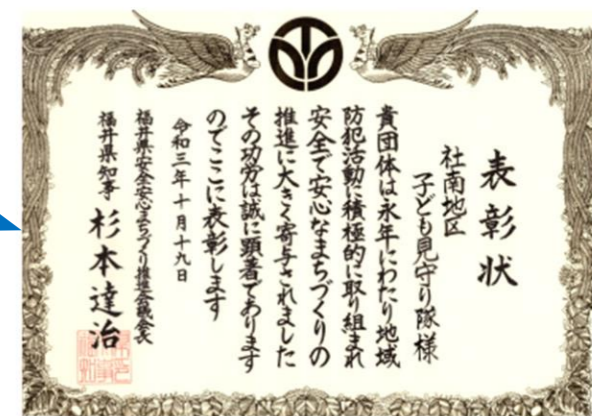 表彰状
社南地区
子ども見守り隊様
貴団体は永年にわたり地域
防犯活動に積極的に取り組まれ
安全で安心なまちづくりの
推進に大きく寄与されました
その功労は誠に顕著であります
のでここに表彰します
令和三年十月十九日
福井県安全安心まちづくり推進会議会長
福井県知事 杉本達治